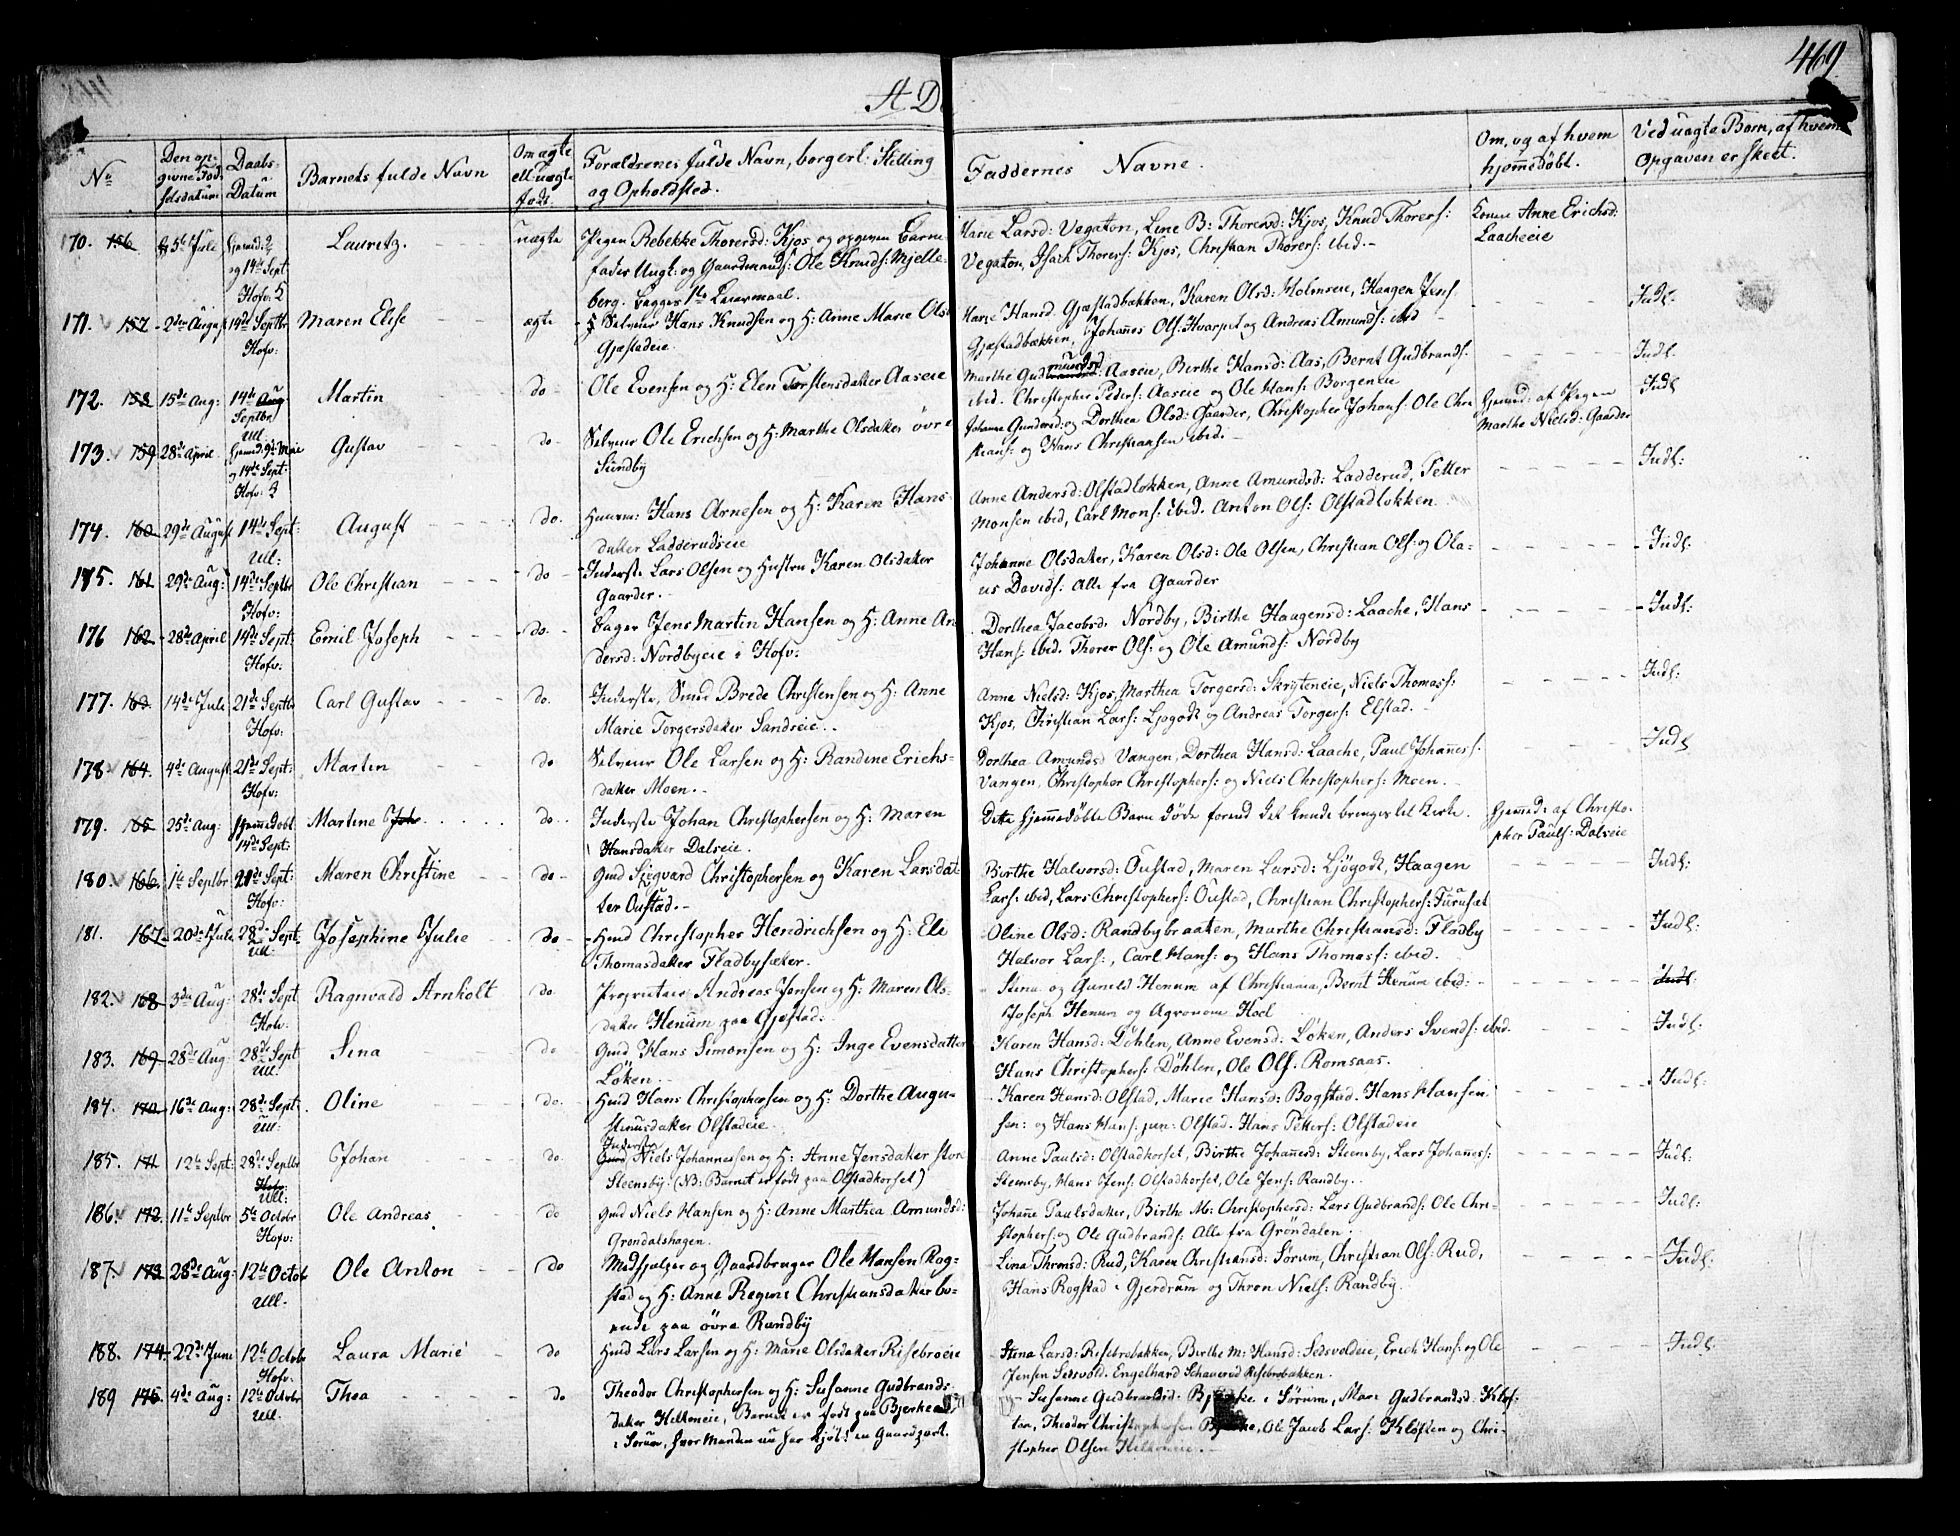 469
A D
No
Den op-
givne Fød-
selsdatum
Daabs-
Datum
Barnets fulde Navn
Om ægte
ell. uægte
føds.
Forældrenes fulde Navn, borgerl: Stilling
og Opholdsted.
Faddernes Navne.
Om, og af hvem
hjemmedøbt.
Ved uægte Børn, af hvem
Opgaven er skeet.
170. 156. 5te Jule
og 14de Sept
Hofv:
Lauritz.
uægte
Pigen Rebekke Thorersd: Kjos, og opgiven Barne-
fader Ungk: og Gaardmands: Ole Knuds: Mjelle-
berg. Begges 1ste Leiermaal.
Marie Larsd: Vegaton, Line B: Thorersd: Kjos, Knud Thorers:
Vegaton, Isach Thorers: Kjos, Christian Thorers: ibid. -
Konen Anne Erichsd:
Laacheeie
171. 157. 2den August 14de Septbr
Hofv:
Maren Elise
ægte
Selveier Hans Knudsen og H: Anne Marie Ols
Gjæstadeie.
Marie Hansd: Gjæstadbækken, Karen Olsd: Holmseie, Haagen Jens:
Gjæstadbækken, Johannes Ols: Hvarpet og Andreas Amunds: ibid
Indl:
172. 158 15de Aug: 14de Aug
Septbr
Ull.
Martin
do
Ole Evensen og H: Elen Torstensdatter Aaseie
Marthe Gudmundsd: Aaseie, Birthe Hansd: Aas, Bernt Gudbrands:
ibid. Christopher Peders: Aaseie og Ole Hans: Borgeneie
Indl:
173. 159 28de April
og 14de Sept:
Hofv:
Gustav
do.
Selveier Ole Erichsen og H: Marthe Olsdatter øvre
Sundby
Johanne Gundersd: og Dorthea Olsd: Gaarder, Christopher Johans: Ole Chri
stians: og Hans Christiansen ibid. -
Hjemmed: af Pigen
Marthe Nielsd: Gaarder
Indl
174. 160. 29de August 14de Sept:
Ull:
August
do.
Huusm: Hans Arnesen og H: Karen Hans-
datter Ladderudseie
Anne Andersd: Olstadløkken, Anne Amundsd: Ladderud, Petter
Monsen ibid, Carl Mons: ibid. Anton Ols: Olstadløkken
Indl:
175. 161. 29de Aug: 14de Septbr
Hofv:
Ole Christian
do
Inderste Lars Olsen og Hustru Karen Olsdatter
Gaarder. -
Johanne Olsdatter, Karen Olsd: Ole Olsen, Christian Ols: og Ola-
us Davids: Alle fra Gaarder
Indl:
176 162. 28de April 14de Sept:
Hofv:
Emil Joseph
do.
Bager Jens Martin Hansen og H: Anne An
dersd: Nordbyeie i Hofv:
Dorthea Jacobsd: Nordby, Birthe Haagensd: Laache, Hans
Hans: ibid. Thorer Ols: og Ole Amunds: Nordby
Indl:
177. 163. 14de Jule 21de Septbr
Hofv:
Carl Gustav
do.
Inderste, Smed Brede Christensen og H: Anne
Marie Torgersdatter Sandseie. -
Anne Nielsd: Kjos, Marthea Torgersd: Skryteneie, Niels Thomass:
Kjos, Christian Lars: Ljøgodt og Andreas Torgers: Elstad. -
Indl:
178 164. 4de August 21de Sept:
Hofv:
Martin
do
Selveier Ole Larsen og H: Randine Erichs-
datter Moen. -
Dorthea Amundsd Vangen, Dorthea Hansd: Laache, Paul Johanness:
Vangen, Christopher Christophers: og Niels Christophers: Moen. -
Indl
179. 165. 25de Aug: Hjemmedøbt
14de Sept:
Martine Joh
do.
Inderste Johan Christophersen og H: Maren
Hansdatter Dalseie.
Dette hjemmedøbte Barn døde forend det kunde bringes til Kirke.
Hjemmed: af Christo-
pher Pauls: Dalseie
180. 166. 1ste Septbr 21de Sept:
Hofv:
Maren Christine
do
Gmd Sigvard Christophersen og Karen Larsdat-
ter Oustad. -
Birthe Halvorsd: Oustad, Maren Larsd: Ljøgodt, Haagen
Lars: ibid, Lars Christophers: Oustad, Christian Christophers: Furuset
Indl:
181. 167. 20de Jule 28de Sept:
Ull:
Josephine Julie
do
Hmd Christopher Hendrichsen og H: Eli
Thomasdatter Fladbysæter.
Oline Olsd: Randbybraaten, Marthe Christiansd: Fladby
Halvor Lars:, Carl Hans: og Hans Thomass: ibid.
Indl:
182. 168. 3die Aug: 28de Sept
Hofv.
Ragnvald Arnholt
do.
Proprietair Andreas Jensen og H: Maren Ols-
datter Henum paa Gjæstad:
Stina og Gunild Henum af Christiania, Bernt Henum ibid:
Joseph Henum og Agronom Hoel
Indl:
183. 169. 28de Aug: 28de Sept
Ull:
Sina
do
Gmd Hans Simonsen og H: Inge Evensdatter
Løken.
Karen Hansd: Døhlen, Anne Evensd: Løken, Anders Svends: ibid.
Hans Christophers: Døhlen, Ole Ols: Romsaas.
Indl:
184. 170. 16de Aug: 28de Sept:
Ull:
Oline
do.
Hmd Hans Christophersen og H: Dorthe Augu-
stinusdatter Olstadeie.
Karen Hansd: Olstad, Marie Hansd: Bogstad. Hans Hansen
sen: og Hans Hans: jun: Olstad. Hans Petters: Olstadeie
Indl:
185. 171 12te Sept: 28de Septbr
Hofv:
Ull:
Johan
do.
Inderste
Gmd Niels Johannessen og H: Anne Jensdatter store
Steensby. (NB: Barnet er født paa Olstadkorset)
Anne Paulsd: Olstadkorset, Birthe Johannesd: Steensby, Lars Johanness:
Steensby, Hans Jens: Olstadkorset, Ole Jens: Randby.
Indl:
186. 172. 11te Septbr 5te Octobr
Hofv:
Ole Andreas
do
Gmd Niels Hansen og H: Anne Marthea Amundsd:
Grøndalshagen.
Johanne Paulsdatter, Birthe M: Christophersd: Lars Gudbrands: Ole Chri-
stophers: og Ole Gudbrands: Alle fra Grøndalen.
Indl:
187. 173 28de Aug: 12te Octob
Ull.
Ole Anton
do
Medhjælper og Gaardbruger Ole Hansen Rog-
stad og H: Anne Regine Christiansdatter bo-
ende paa øvre Randby
Lina Thronsd: Rud, Karen Christiansd: Sørum, Christian Ols: Rud,
Hans Rogstad i Gjerdrum og Thron Niels: Randby.
Indl:
188. 174. 22de Juni 12te Octobr
Hofv.
Laura Marie
do
Hmd Lars Larsen og H: Marie Olsdatter Risebroeie
Stina Larsd: Risebrobakken, Birthe M: Hansd: Sedsvoldeie, Erich Hans: og Ole
Jensen Sedsvold. Engelhard Schauerud Risebrobakken.
Indl:
189 175. 4de Aug: 12te Octobr
Ull.
Thea
do
Theodor Christophersen og H: Susanne Gudbrands-
datter Hilkoneie, Barnet er født paa Bjerke
i Sørum, hvor Manden nu har kjøbt en Gaardpart.
Susanne Gudbrandsd. Bjerke i Sørum, Mari Gudbrandsd: Kløf-
ten, Theodor Christophersen Bjerke, Ole Jacob Lars: Kløften og Chri-
stopher Olsen Hilkoneie. -